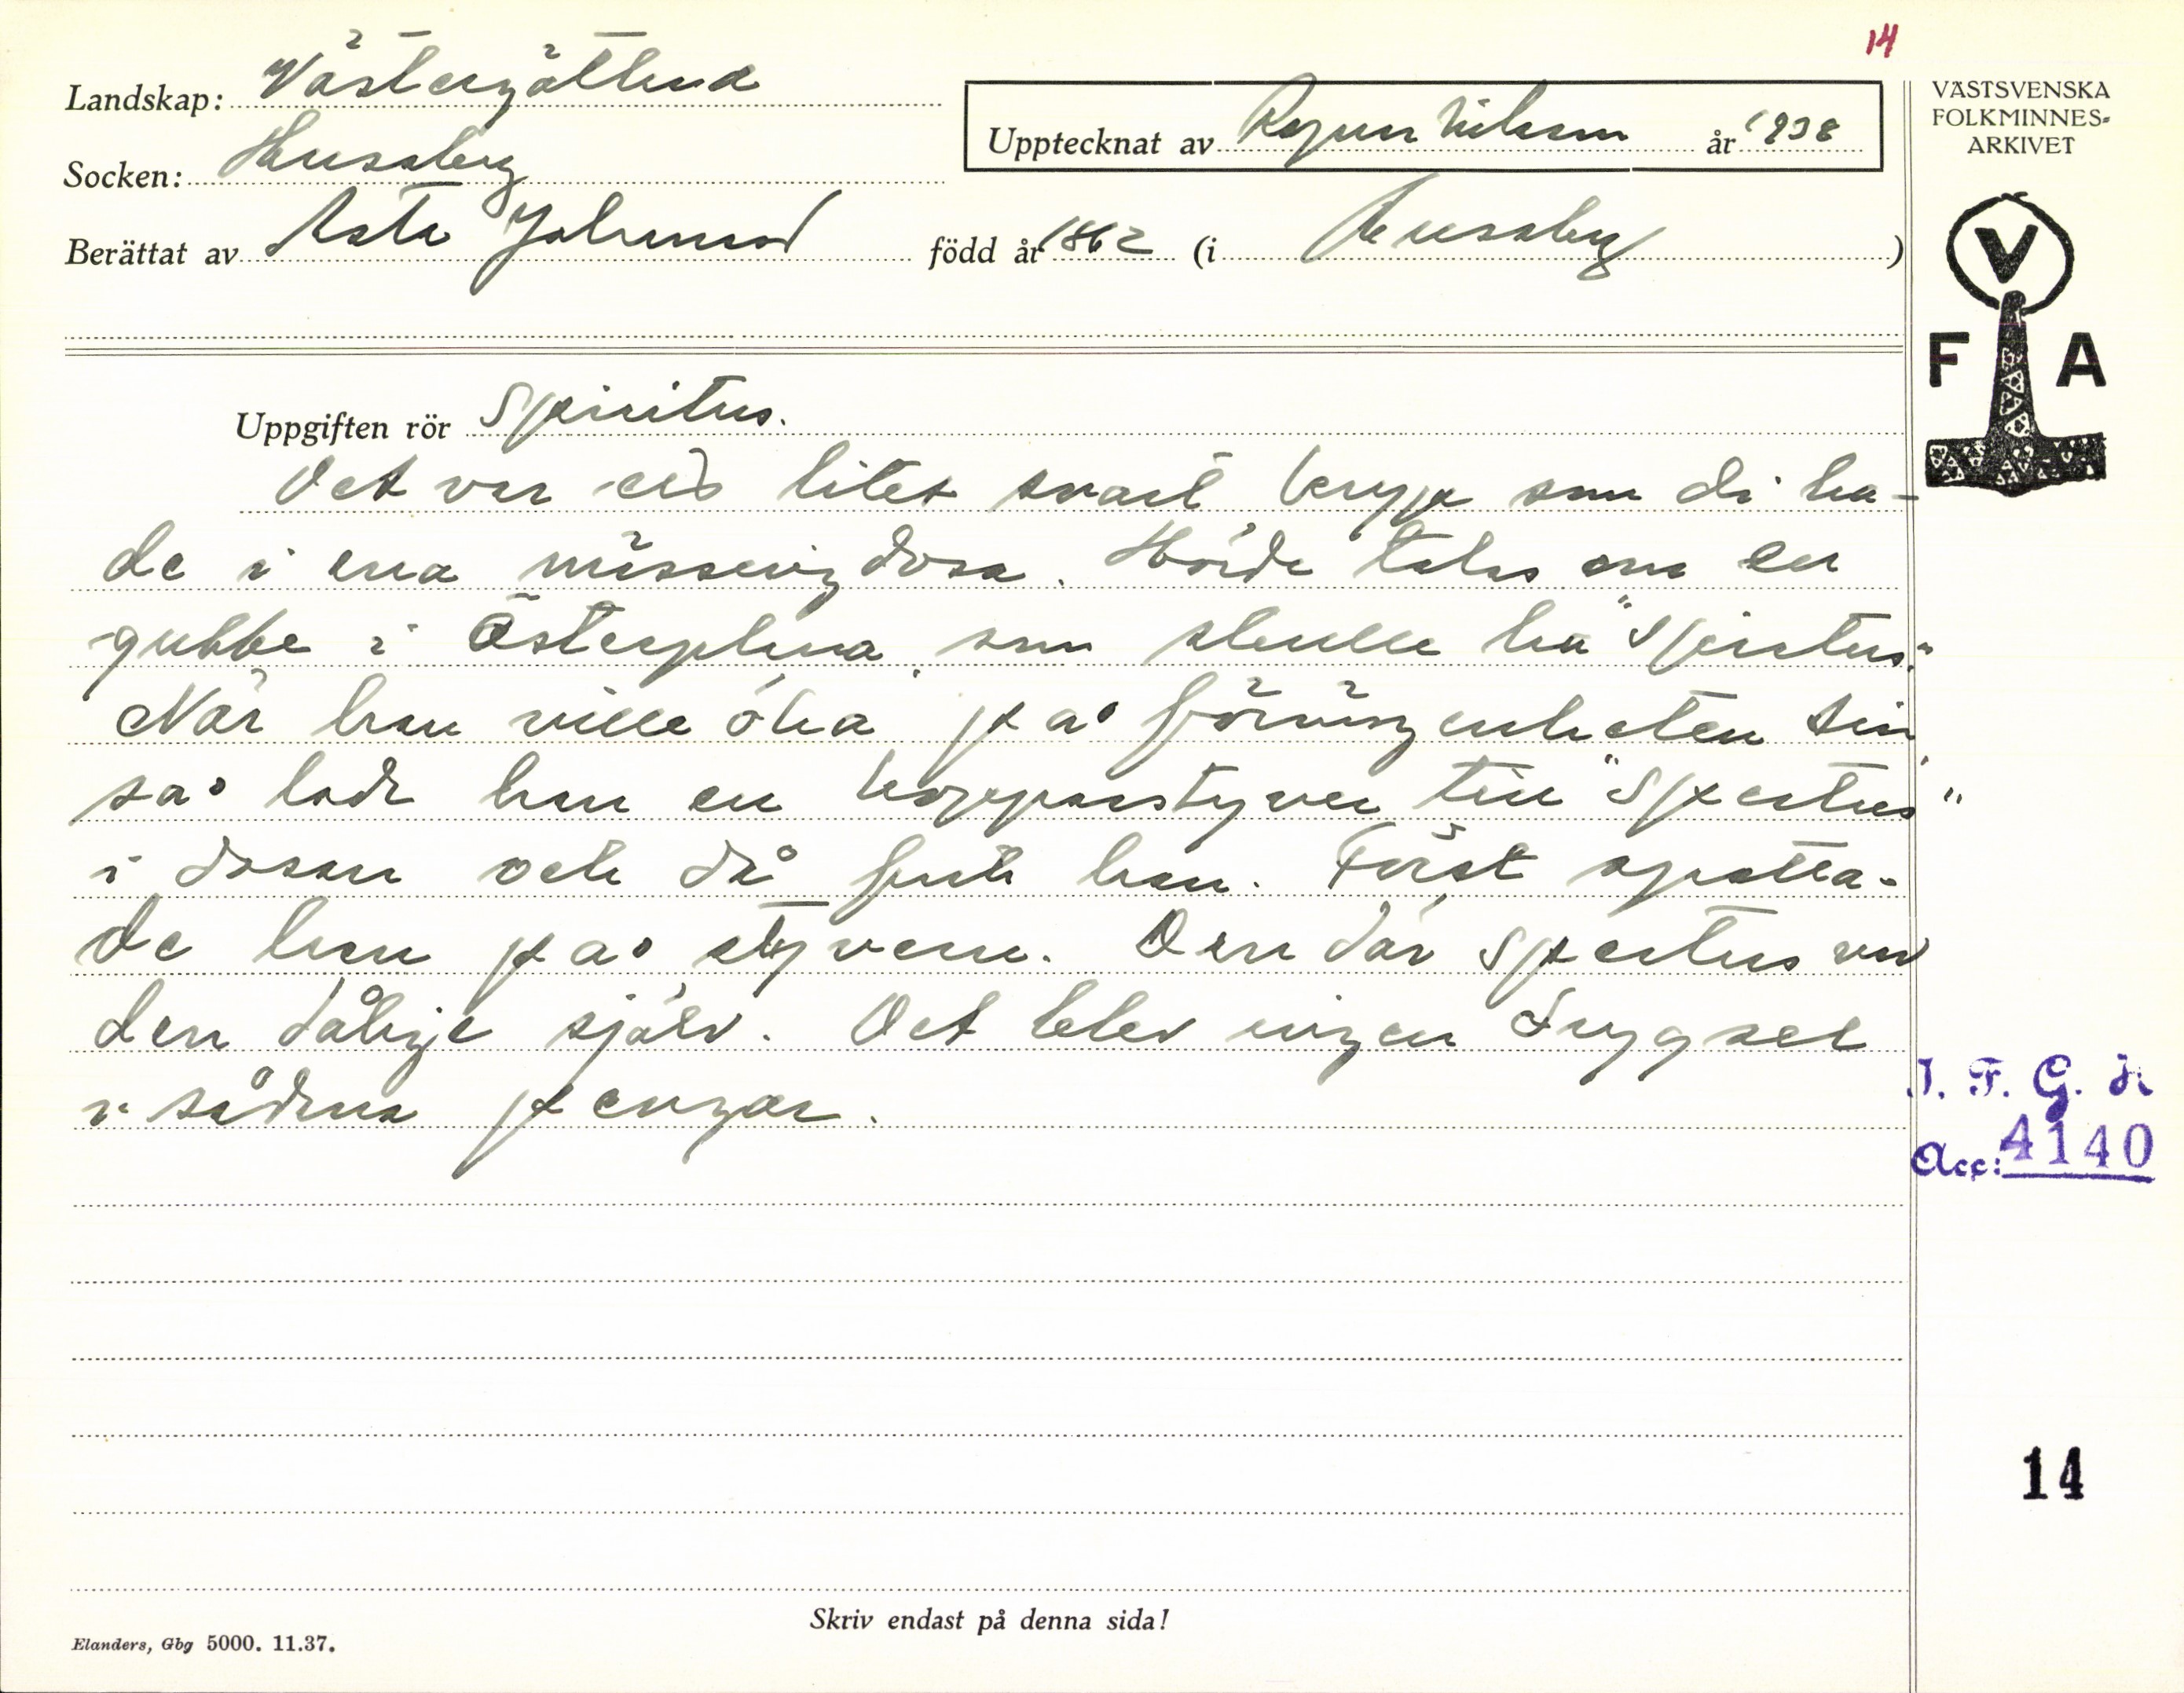 14
Landskap: Västergötland
Upptecknat av Ragnar Nilsson år 1938
Socken: Hussaby
Berättat av Johansson född år 1862 (i Hussaby)
VÄSTSVENSKA
FOLKMINNES-
ARKIVET
V
F A
Uppgiften rör Spiritus.
Det var ett litet svart kryp som di ha-
de i ena mässingdosa. Hörde talas om en
gubbe i Österplana, som skulle ha "Spirtus."
När han ville öka på förmögenheten sin,
så lade han en kopparstyver till "Spertus"
i dosan och då fick han. Först spotta-
de han på styvern. Den där Spertus var
den dålige själv. Det blev ingen drygsel
i sådana pengar.
I. F. G. H
Acc: 4140
14
Skriv endast på denna sida!
Elanders, Gbg 5000. 11.37.